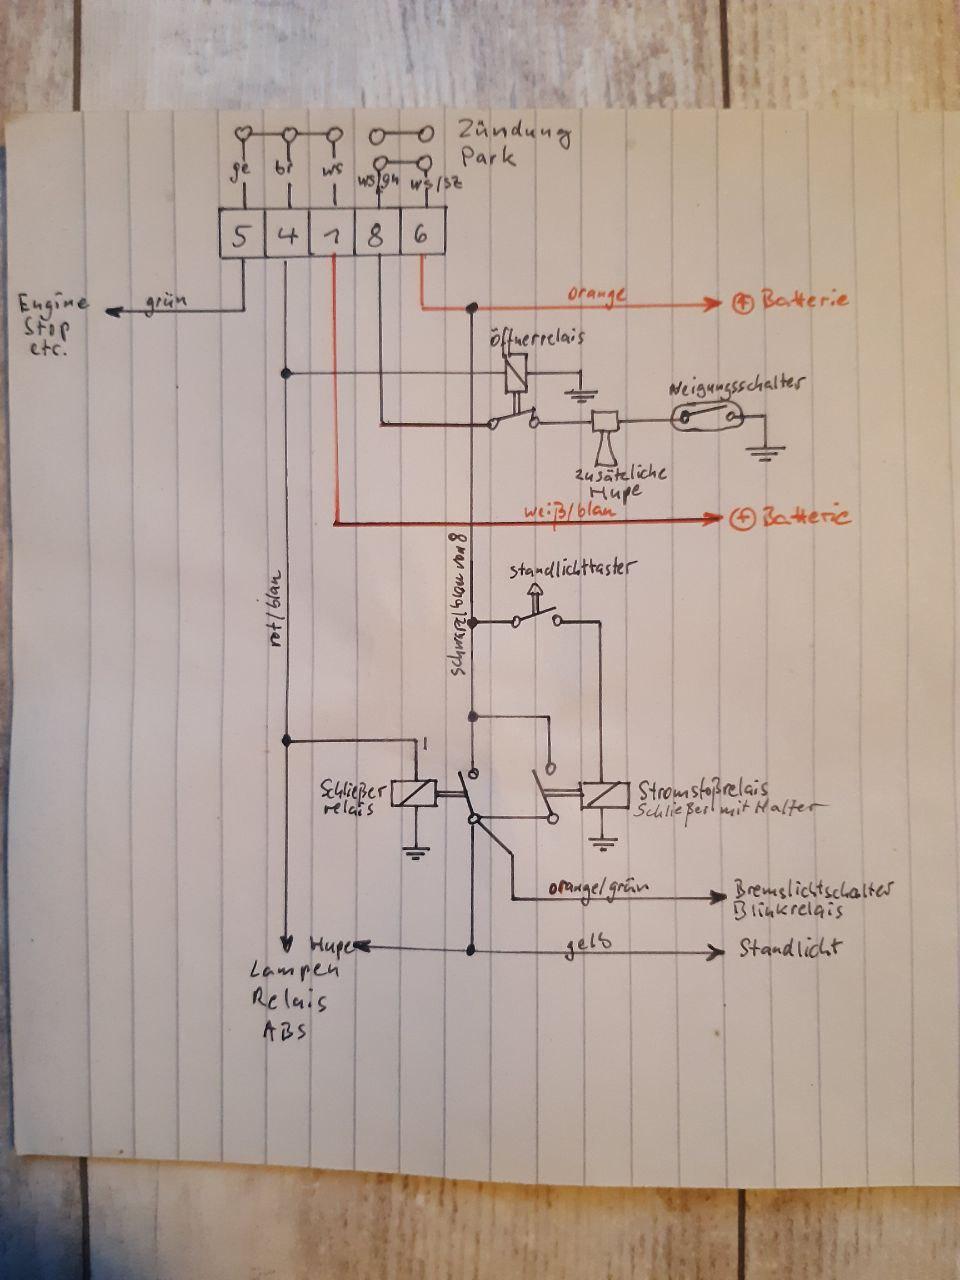 Zündung
Park
ge
br
ws
ws/gn
ws/sz
5
4
1
8
6
Engine
Stop
etc.
grün
orange
+ Batterie
Öffnerrelais
Neigungsschalter
zusätzliche
Hupe
weiß/blau
+ Batterie
rot/blau
Standlichttaster
Schließer
relais
Stromstoßrelais
Schließer mit Halter
orange/grün
Bremslichtschalter
Blinkrelais
Hupe
gelb
Standlicht
Lampen
Relais
ABS